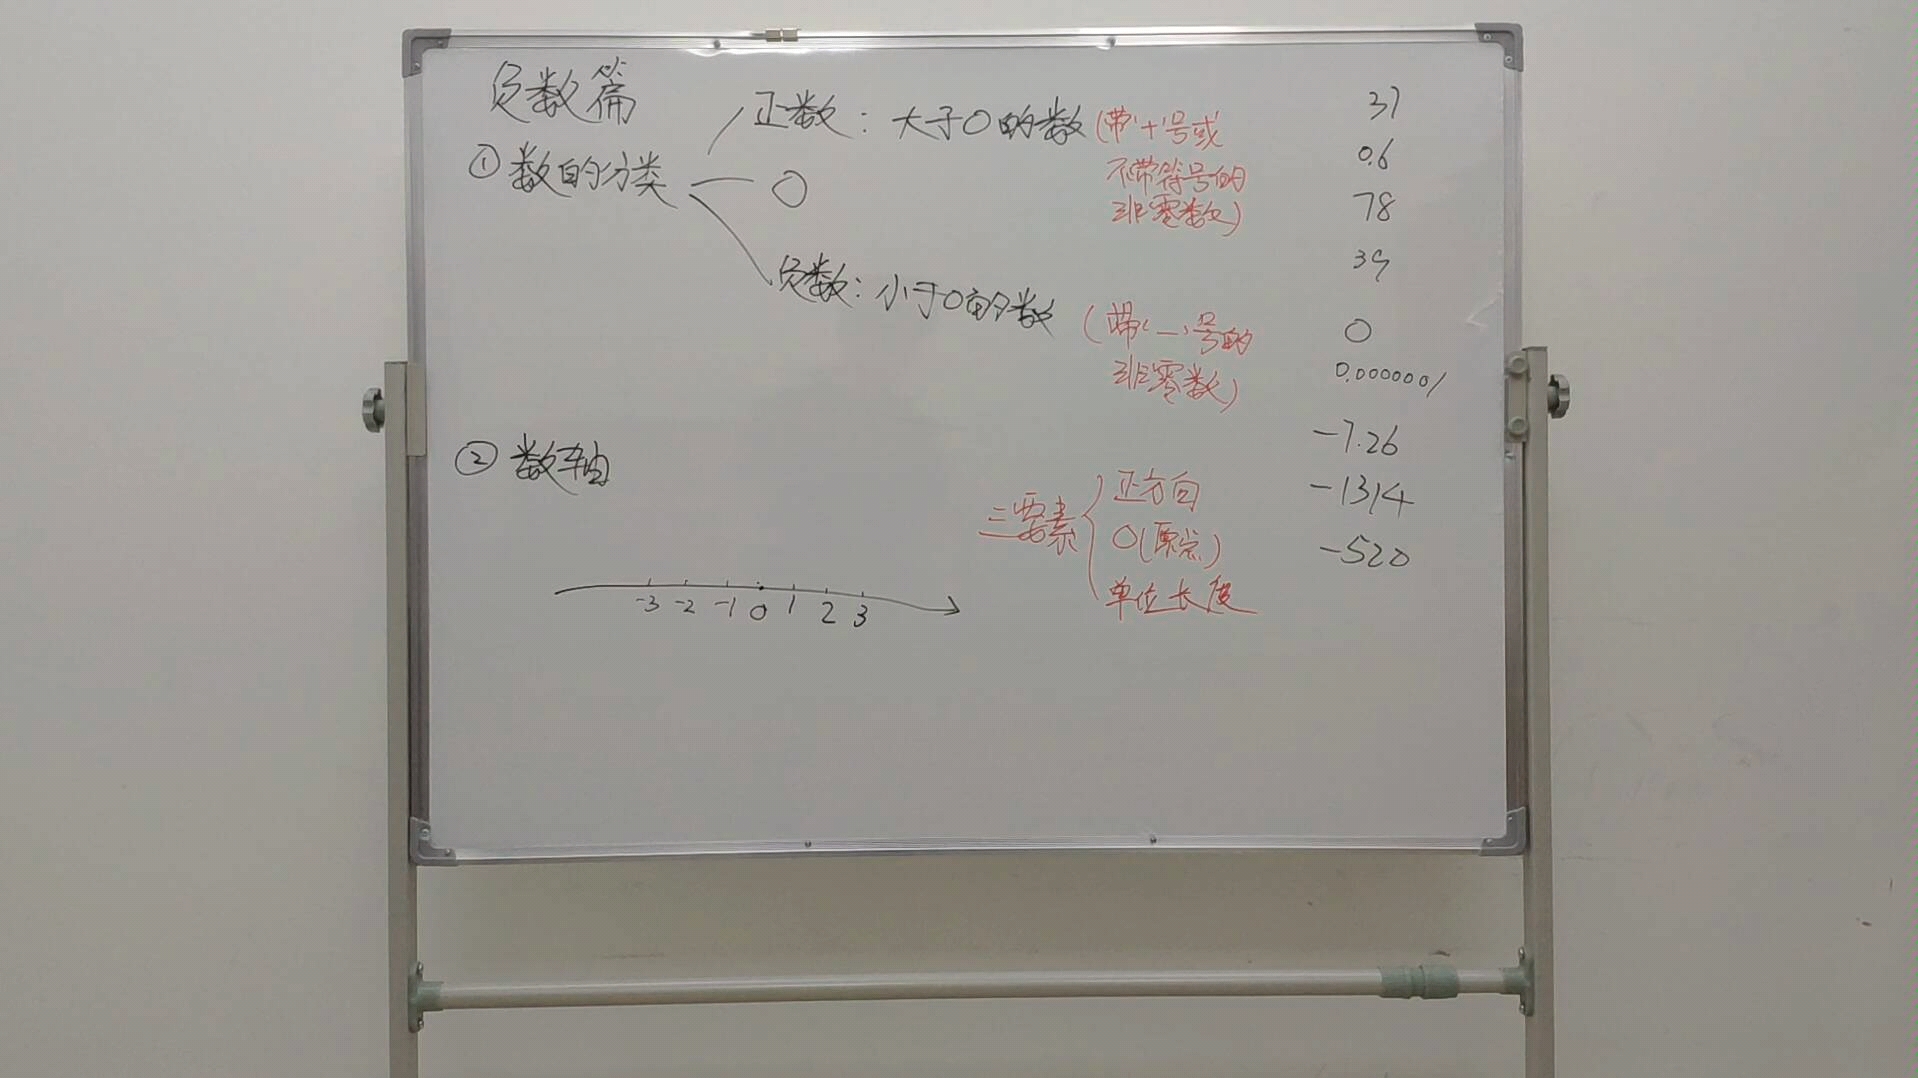 负数篇
①数的分类
正数：大于0的数(带'+'号或
不带符号的
非零数)
0
负数：小于0的数
(带'－'号的
非零数)
37
0.6
78
39
0
0.0000001
-7.26
-1314
-520
②数轴
三要素
正方向
0(原点)
单位长度
-3 -2 -1 0 1 2 3